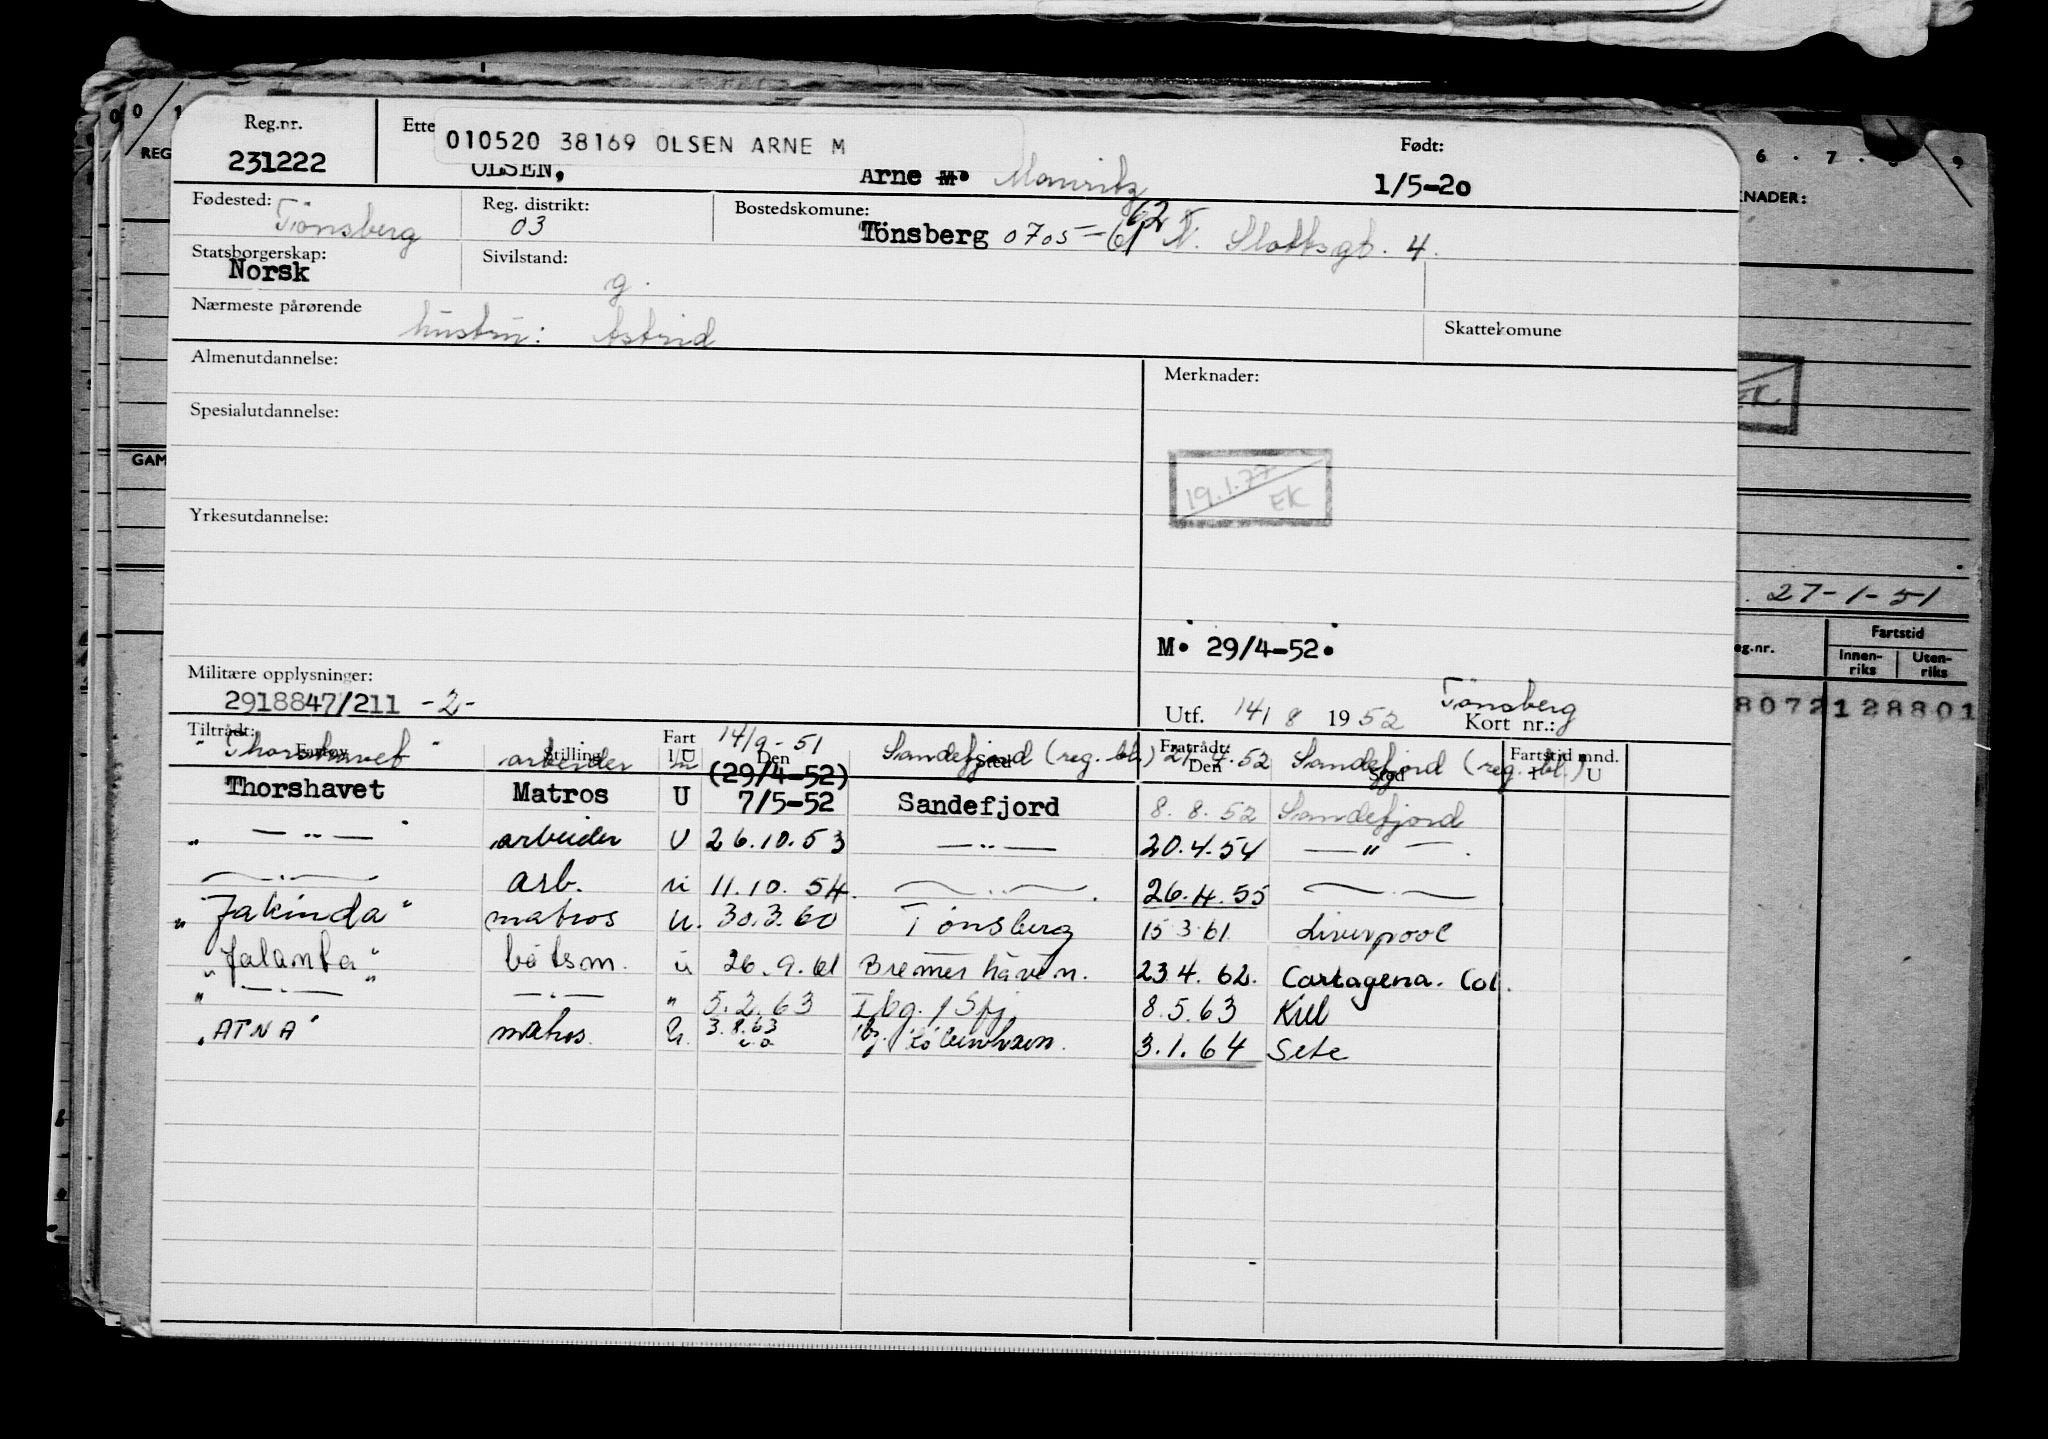 Reg.nr.
231222
Ette
010520 38169 OLSEN ARNE M
OLSEN,
Arne M. Mauritz
Født:
1/5-20
Fødested:
Tönsberg
Reg. distrikt:
03
Bostedskomune:
Tönsberg 0705-61 62 N. Slottsgt. 4.
Statsborgerskap:
Norsk
Sivilstand:
g.
Nærmeste pårørende
hustru: Astrid
Skattekomune
Almenutdannelse:
Merknader:
Spesialutdannelse:
19.1.77
EK
Yrkesutdannelse:
M. 29/4-52.
Militære opplysninger:
2918847/211 -2-
Utf. 14/8 1952
Tönsberg
Kort nr.:
Tiltrådt:
Fartøy
Stilling
Fart
I/U
Den
Sted
Fratrådt:
Den
Sted
Fartstid mnd.
I U
"Thorshavet" arbeider u 14/9-51 Sandefjord (reg. bl.) Sandefjord (reg. bl.)
(29/4-52)
Thorshavet Matros U 7/5-52 Sandefjord 8.8.52 Sandefjord
" — " — " arbeider U 26.10.53 — " — 20.4.54 — " —
— " — arb. u 11.10.54. — " — 26.4.55 — " —
"Jakinda" matros u. 30.3.60 Tønsberg 15 3 61 Liverpool
"Jalanta" båtsm. u 26.9.61 Bremerhaven. 23.4.62. Cartagena. Col.
" — " — " — " — " 5.2.63 8.5.63 Kiel
"ATNA" matros. u. 3.8.63 3.1.64 Sete
REG
GAM
6 . 7 . 8 9
KNADER:
EK
27-1-51
eg.nr.
Fartstid
Innen-
riks
Uten-
riks
8072128801